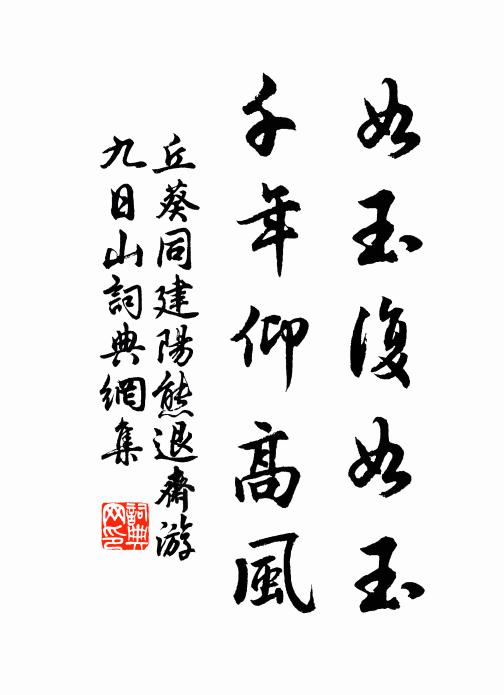 如玉復如玉
千年仰高風
丘葵同建陽熊退齋游
九日山詞典網集
詞典
网印